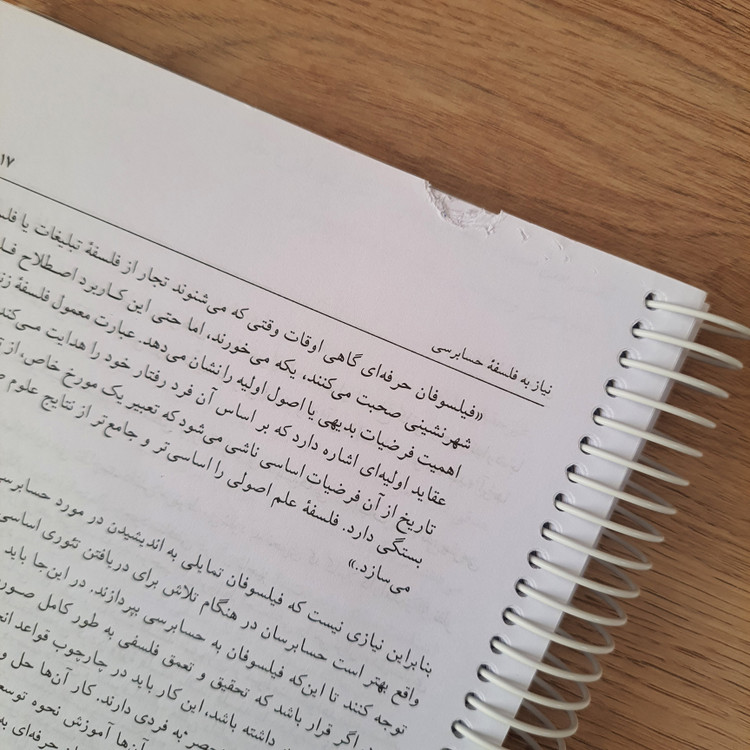 ۱۷
نیاز به فلسفهٔ حسابرسی
«فیلسوفان حرفه‌ای گاهی اوقات وقتی که می‌شنوند تجار از فلسفهٔ تبلیغات یا
شهرنشینی صحبت می‌کنند، یکه می‌خورند، اما حتی این کاربرد اصطلاح
اهمیت فرضیات بدیهی یا اصول اولیه را نشان می‌دهد. عبارت معمول فلسفهٔ
عقاید اولیه‌ای اشاره دارد که بر اساس آن فرد رفتار خود را هدایت می‌کند
تاریخ از آن فرضیات اساسی ناشی می‌شود که تعبیر یک مورخ خاص، از
بستگی دارد. فلسفهٔ علم اصولی را اساسی‌تر و جامع‌تر از نتایج علوم
می‌سازد.»
بنابراین نیازی نیست که فیلسوفان تمایلی به اندیشیدن در مورد حسابرسی
واقع بهتر است حسابرسان در هنگام تلاش برای دریافتن تئوری اساسی
توجه کنند تا این‌که فیلسوفان به حسابرسی بپردازند. در این‌جا باید
اگر قرار باشد که تحقیق و تعمق فلسفی به طور کامل
داشته باشد، این کار باید در چارچوب قواعد
به فردی دارند. کار آن‌ها حل و
آن‌ها آموزش نحوه
حرفه‌ای